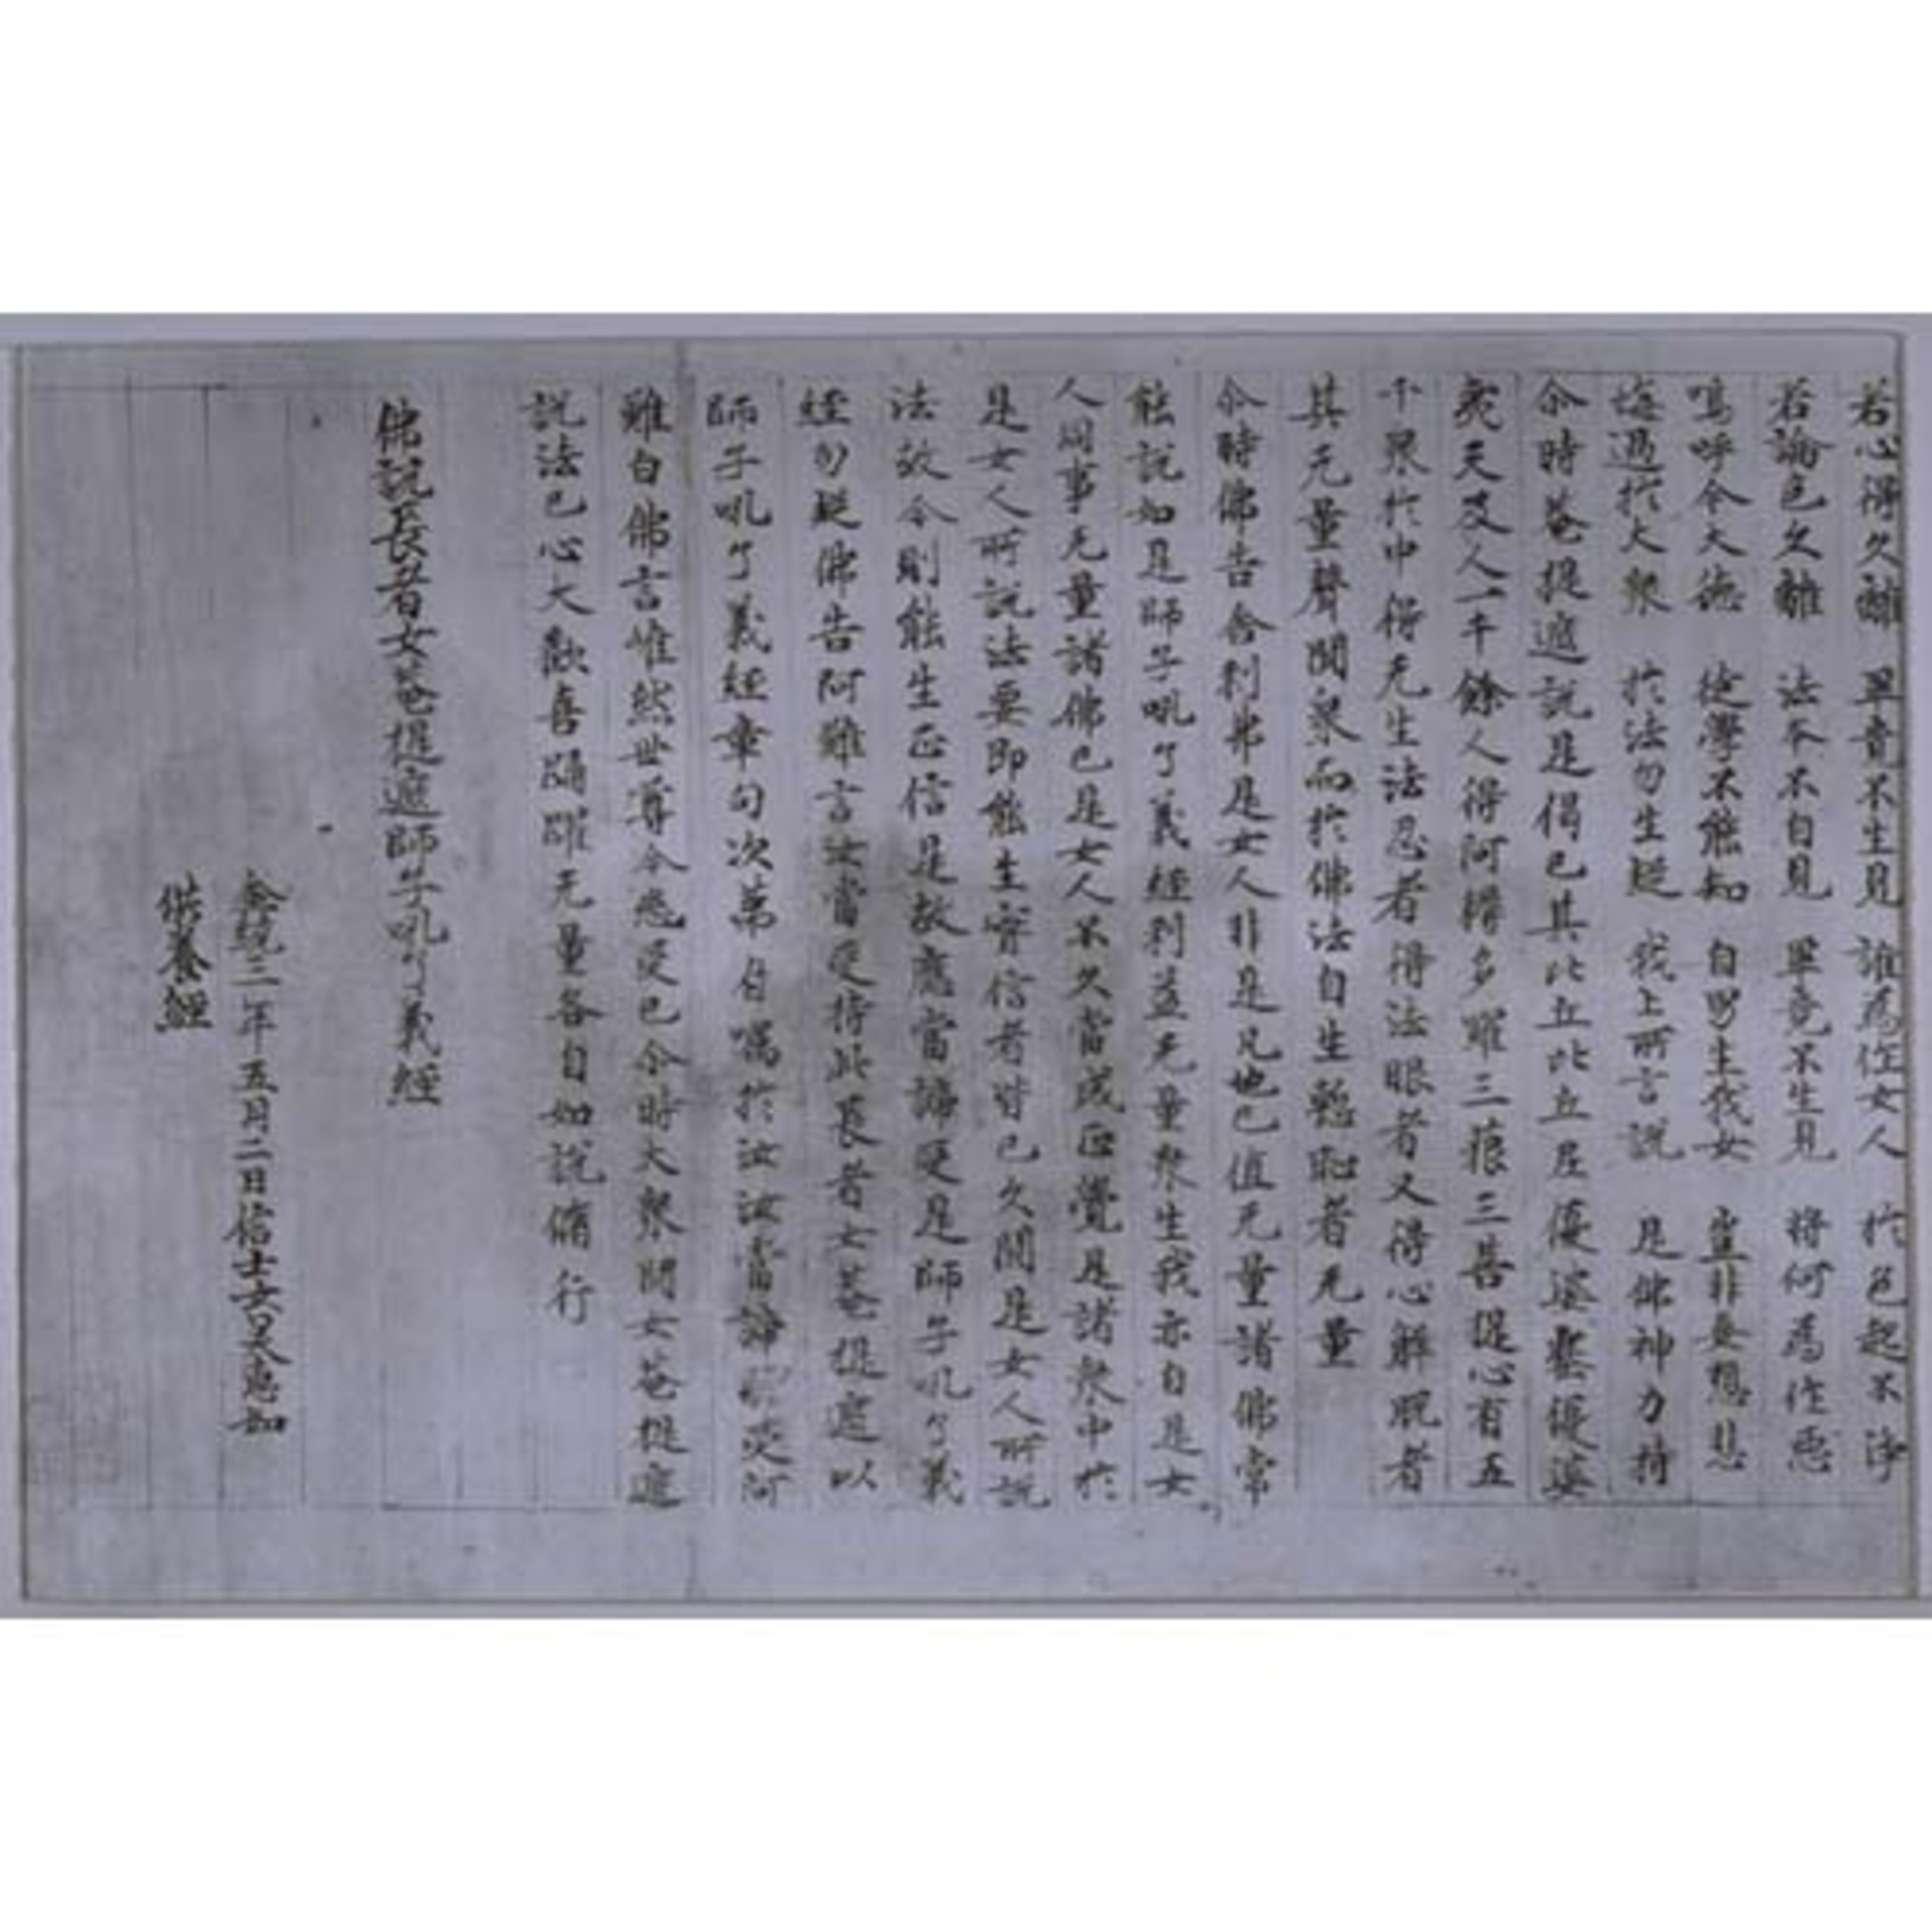 若心得久離 畢竟不生見 誰為作女人 於色起不淨
若論色久離 法本不自見 畢竟不生見 將何為作惡
嗚呼今大德 徒學不能知 自男生我女 豈非妄想悲
悔過於大眾 於法勿生疑 我上所言說 是佛神力持
尒時菴提遮說是偈已其比丘比丘尼優婆塞優婆
夷天及人一千餘人得阿耨多羅三藐三菩提心有五
千眾於中得无生法忍者得法眼者又得心解脫者
其无量聲聞眾而於佛法自生慙恥者无量
尒時佛告舍利弗是女人非是凡也已值无量諸佛常
能說如是師子吼了義經利益无量眾生我亦自是女
人同事无量諸佛已是女人不久當成正覺是諸眾中於
是女人所說法要即能生實信者皆已久聞是女人所說
法故今則能生正信是故應當諦受是師子吼了義
經勿疑佛告阿難言汝當受持此長者女菴提遮以
師子吼了義經章句次第付囑於汝汝當諦受阿
難白佛言惟然世尊今悉受已尒時大眾聞女菴提遮
說法已心大歡喜踊躍无量各自如說脩行
佛說長者女菴提遮師子吼了義經
三年五月二日信士女吳惠知
供養經